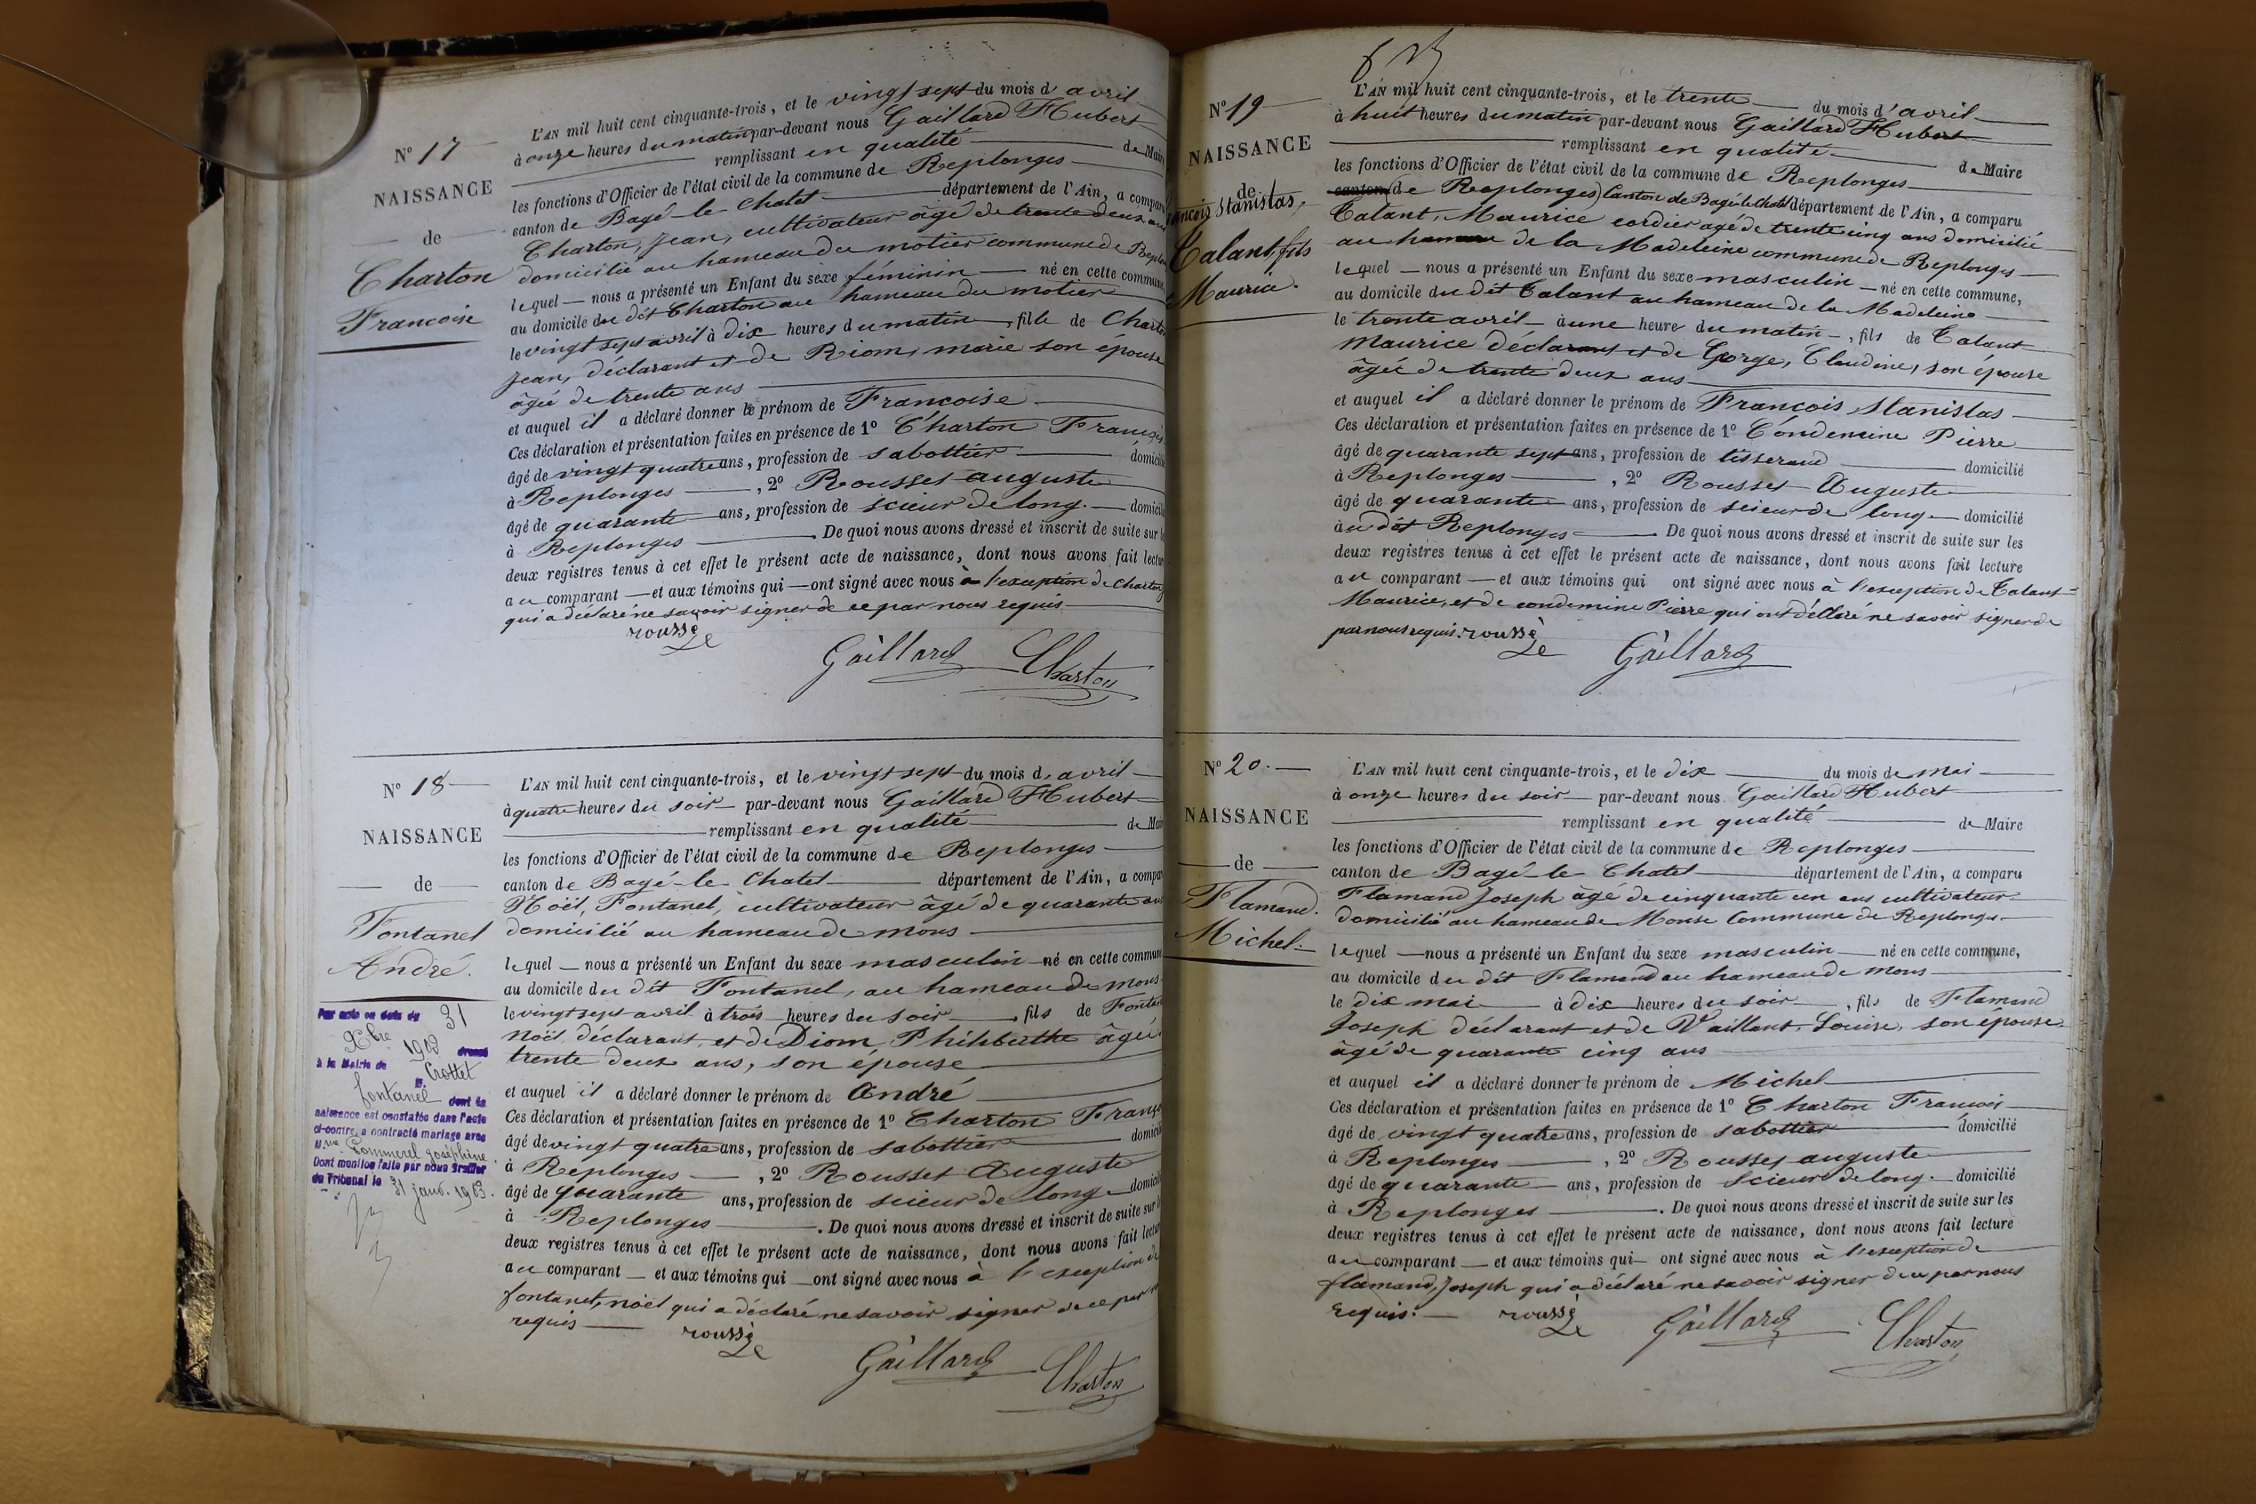 N° 17
NAISSANCE
de
Charton
Francoise
L'AN mil huit cent cinquante-trois, et le vingt sept du mois d'avril
à onze heures du matin par-devant nous Gaillard Hubert
remplissant en qualité de Maire
les fonctions d'Officier de l'état civil de la commune de Replonges
canton de Bagé-le-Chatel département de l'Ain, a comparu
Charton, Jean, cultivateur âgé de trente deux ans
domicilié au hameau du motier commune de Replon
lequel nous a présenté un Enfant du sexe féminin né en cette commune,
au domicile du dit Charton au hameau du motier
le vingt sept avril à dix heures du matin, fille de Charton
Jean, déclarant et de Riom, marie son épouse
âgée de trente ans
et auquel il a déclaré donner le prénom de Francoise
Ces déclaration et présentation faites en présence de 1° Charton François
âgé de vingt quatre ans, profession de sabottier domicilié
à Replonges, 2° Rousset auguste
âgé de quarante ans, profession de scieur de long domicilié
à Replonges. De quoi nous avons dressé et inscrit de suite sur les
deux registres tenus à cet effet le présent acte de naissance, dont nous avons fait lecture
au comparant et aux témoins qui ont signé avec nous à l'exception de charton
qui a déclaré ne savoir signer de ce par nous requis
roussè
Gaillard Charton
N° 18
NAISSANCE
de
Fontanel
André.
Par acte en date du 31
Xbre 1903 dressé
à la Mairie de Crottet
M. fontanel dont la
naissance est constatée dans l'acte
ci-contre, a contracté mariage avec
Mme Commerel Joséphine
Dont mention faite par nous Greffier
du Tribunal le 31 janv. 1903.
L'AN mil huit cent cinquante-trois, et le vingt sept du mois d'avril
à quatre heures du soir par-devant nous Gaillard Hubert
remplissant en qualité de Maire
les fonctions d'Officier de l'état civil de la commune de Replonges
canton de Bagé-le-Chatel département de l'Ain, a compar
Noël, Fontanel, cultivateur âgé de quarante ans
domicilié au hameau de mons
lequel nous a présenté un Enfant du sexe masculin né en cette commune
au domicile du dit Fontanel, au hameau de mons
le vingt sept avril à trois heures du soir, fils de Fontan
Noël déclarant, et de Diom Philiberthe âgée
trente deux ans, son épouse
et auquel il a déclaré donner le prénom de André
Ces déclaration et présentation faites en présence de 1° Charton Franço
âgé de vingt quatre ans, profession de sabottier domicilié
à Replonges, 2° Rousset Auguste
âgé de quarante ans, profession de scieur de long domicilié
à Replonges. De quoi nous avons dressé et inscrit de suite sur l
deux registres tenus à cet effet le présent acte de naissance, dont nous avons fait lectur
au comparant et aux témoins qui ont signé avec nous à l'exception de
fontanet, noël qui a déclaré ne savoir signer de ce par n
requis
roussè
Gaillard Charton
N° 19
NAISSANCE
de
ancois Stanistas,
Calant, fils
Maurice.
L'AN mil huit cent cinquante-trois, et le trente du mois d'avril
à huit heures du matin par-devant nous Gaillard Hubert
remplissant en qualité de Maire
les fonctions d'Officier de l'état civil de la commune de Replonges
canton de Replonges Canton de Bagé le chatel département de l'Ain, a comparu
Calant, Maurice cordier agé de trente cinq ans domicilié
au hameau de la Madeleine commune de Replonges
lequel nous a présenté un Enfant du sexe masculin né en cette commune,
au domicile du dit Calant au hameau de la Madeleine
le trente avril à une heure du matin, fils de Calant
Maurice déclarant et de Gorge, Claudine, son épouse
âgée de trente deux ans
et auquel il a déclaré donner le prénom de François Stanistas
Ces déclaration et présentation faites en présence de 1° Condemine Pierre
âgé de quarante sept ans, profession de tisserand domicilié
à Replonges, 2° Rousset Auguste
âgé de quarante ans, profession de scieur de long domicilié
au dit Replonges. De quoi nous avons dressé et inscrit de suite sur les
deux registres tenus à cet effet le présent acte de naissance, dont nous avons fait lecture
au comparant et aux témoins qui ont signé avec nous à l'exception de Calant
Maurice, et de condemine Pierre qui ont déclaré ne savoir signer de
par nous requis. roussè
Gaillard
N° 20.
NAISSANCE
de
Flamand.
Michel.
L'AN mil huit cent cinquante-trois, et le dix du mois de mai
à onze heures du soir par-devant nous Gaillard Hubert
remplissant en qualité de Maire
les fonctions d'Officier de l'état civil de la commune de Replonges
canton de Bagé-le-Chatel département de l'Ain, a comparu
Flamand Joseph âgé de cinquante un ans cultivateur
domicilié au hameau de Monse Commune de Replonges
lequel nous a présenté un Enfant du sexe masculin né en cette commune,
au domicile du dit Flamand au hameau de mons
le dix mai à dix heures du soir, fils de Flamand
Joseph déclarant et de Vaillant, Louise, son épouse
âgé de quarante cinq ans
et auquel il a déclaré donner le prénom de Michel
Ces déclaration et présentation faites en présence de 1° Charton Francois
âgé de vingt quatre ans, profession de sabottier domicilié
à Replonges, 2° Rousset auguste
âgé de quarante ans, profession de scieur de long domicilié
à Replonges. De quoi nous avons dressé et inscrit de suite sur les
deux registres tenus à cet effet le présent acte de naissance, dont nous avons fait lecture
au comparant et aux témoins qui ont signé avec nous à l'exception de
flamand, Joseph qui a déclaré ne savoir signer de ce par nous
requis. roussè
Gaillard Charton